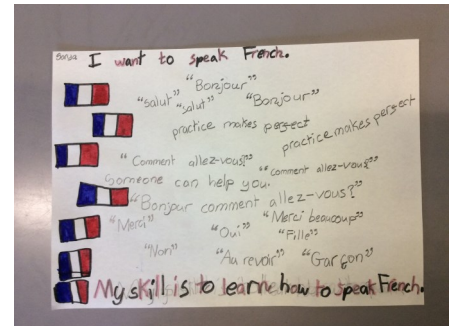 Sonja
I want to speak French.
"Bonjour"
"Salut" "Salut" "Bonjour"
practice makes perfect
practice makes perfect
"Comment allez-vous?" "Comment allez-vous?"
Someone can help you.
"Bonjour comment allez-vous?"
"Merci" "Merci beaucoup"
"Oui" "Fille"
"Non" "Au revoir" "Garçon"
My skill is to learn how to speak French.